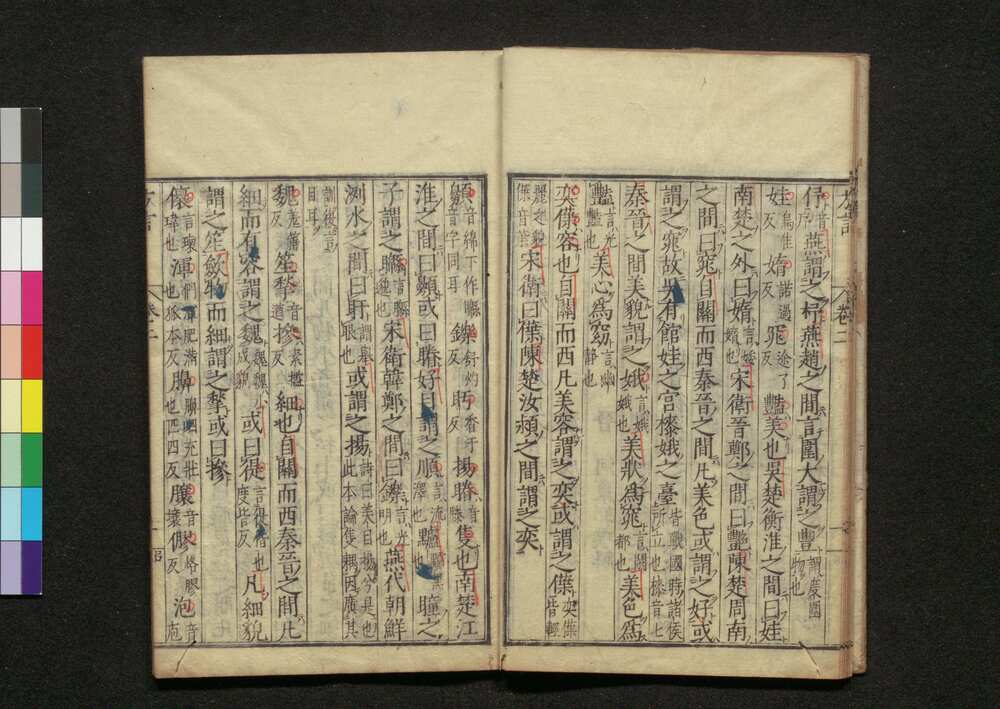 伃音序燕謂之杼燕趙之間言圍大謂之豐謂度圍物也
娃烏佳反嫷諾過反窕途了反艷美也吳楚衡淮之間曰娃
南楚之外曰嫷言婑嫷也宋衛晉鄭之間曰艷陳楚周南
之間曰窕自關而西秦晉之間凡美色或謂之好或
謂之窕故吳有館娃之宮榛娥之臺皆戰國時諸侯所立也榛音七
秦晉之間美貌謂之娥言娥娥也美狀為窕言閑都也美色為
艷言光艷也美心為窈言幽靜也
奕僷容也自關而西凡美容謂之奕或謂之僷奕僷皆輕
麗之貌僷音葉宋衛曰僷陳楚汝潁之間謂之奕
方言 卷二
顤音綿下作䁇音字同耳鑠舒灼反盱香于反揚䁯音滕隻也南楚江
淮之間曰顤或曰䁯好目謂之順言流澤也䁲黸黑也瞳之
子謂之䁇言䁇邈也宋衛韓鄭之間曰鑠言光明也燕代朝鮮
洌水之間曰盱謂舉眼也或謂之揚詩曰美目揚兮是也此本論隻耦因廣其
訓復言目耳
魏羌箠反笙揫音遒摻素檻反細也自關而西秦晉之間凡
細而有容謂之魏魏魏小成貌或曰徥言徥偕也度皆反凡細貌
謂之笙斂物而細謂之揫或曰摻
言瓌瑋也渾們渾肥滿也狐本反呬充壯也匹四反音壤膠泡音庖
方言 卷二